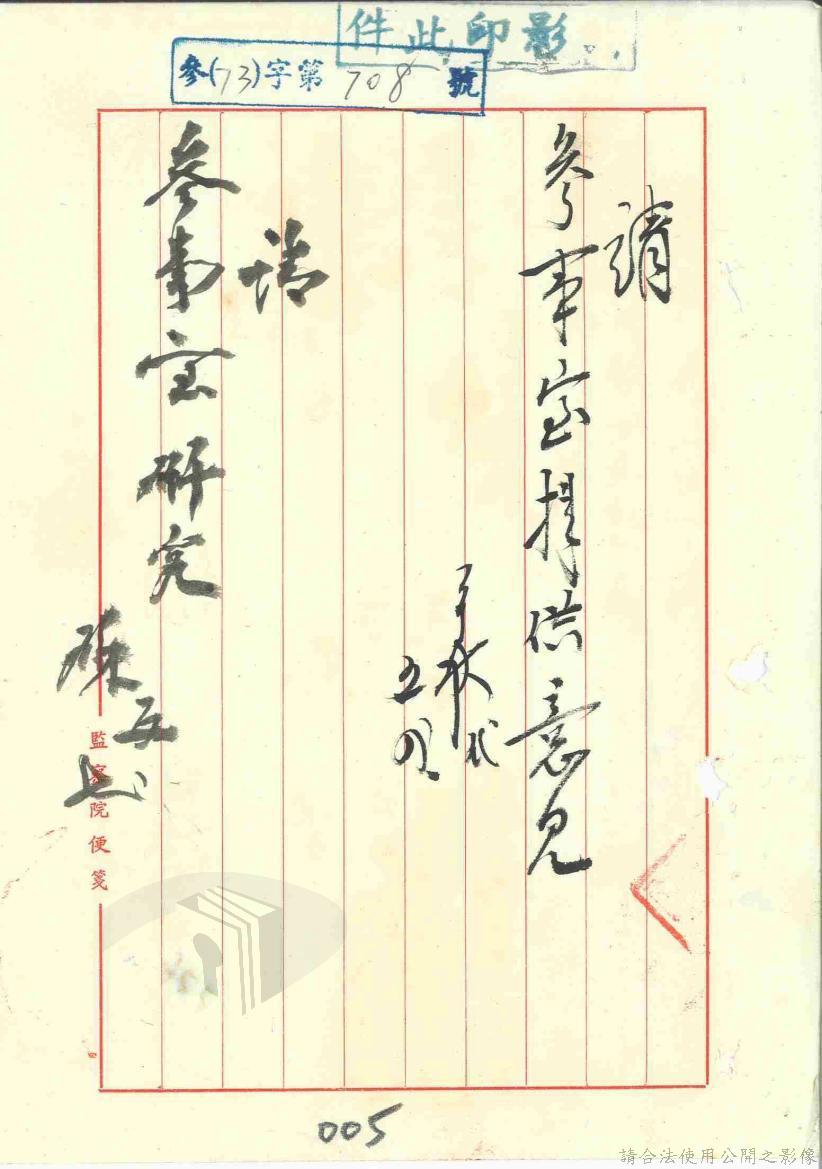 影印此件
參(73)字第708號
請
參事室提供意見
五月
請
參事室研究
監察院便箋
005
請合法使用公開之影像